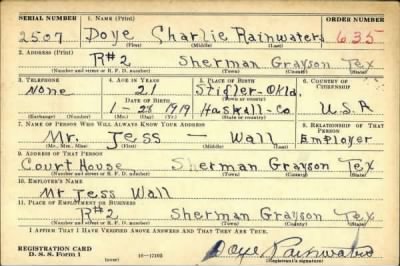 SERIAL NUMBER 1. NAME (Print) ORDER NUMBER
2507 Doye Charlie Rainwaters 635
(First) (Middle) (Last)
2. ADDRESS (Print)
R#2 Sherman Grayson Tex
(Number and street or R. F. D. number) (Town) (County) (State)
3. TELEPHONE 4. AGE IN YEARS 5. PLACE OF BIRTH 6. COUNTRY OF CITIZENSHIP
None 21 Stigler-Okla.
DATE OF BIRTH (Town or county)
1-28 1919 Haskall-Co U.S.A
(Exchange) (Number) (Mo.) (Day) (Yr.) (State or country)
7. NAME OF PERSON WHO WILL ALWAYS KNOW YOUR ADDRESS 8. RELATIONSHIP OF THAT PERSON
Mr. Jess — Wall Employer
(Mr., Mrs., Miss) (First) (Middle) (Last)
9. ADDRESS OF THAT PERSON
Court House Sherman Grayson Tex
(Number and street or R. F. D. number) (Town) (County) (State)
10. EMPLOYER'S NAME
Mr Jess Wall
11. PLACE OF EMPLOYMENT OR BUSINESS
R#2 Sherman Grayson Tex
(Number and street or R. F. D. number) (Town) (County) (State)
I AFFIRM THAT I HAVE VERIFIED ABOVE ANSWERS AND THAT THEY ARE TRUE.
REGISTRATION CARD Doye Rainwaters
D. S. S. Form 1 (over) 16-17105 (Registrant's signature)